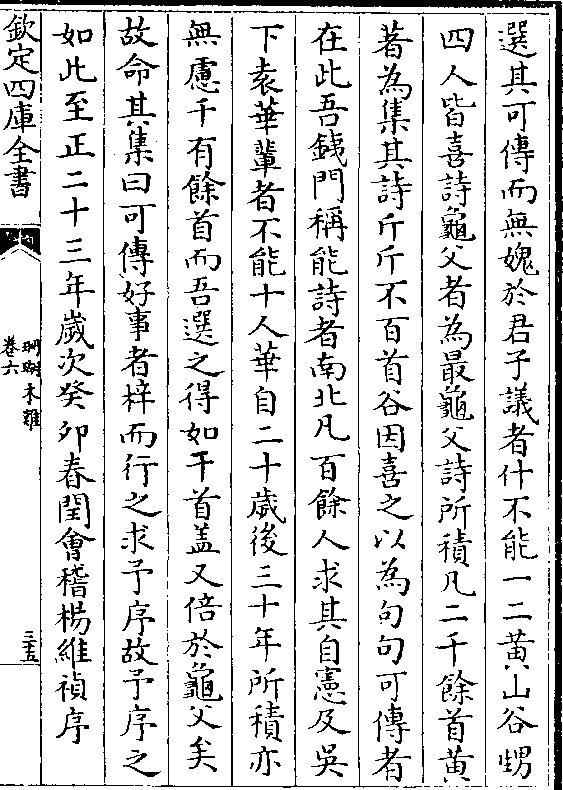 選其可傳而無媿於君子議者什不能一二黄山谷甥
四人皆喜詩龜父者為最龜父詩所積凡二千餘首黄
著為集其詩斤斤不百首谷因喜之以為句句可傳者
在此吾銕門稱能詩者南北凡百餘人求其自憲及吳
下袁華軰者不能十人華自二十歲後三十年所積亦
無慮千有餘首而吾選之得如干首盖又倍於龜父矣
故命其集曰可傳好事者梓而行之求予序故予序之
如此至正二十三年歲次癸卯春閏會稽楊維禎序
欽定四庫全書
珊瑚木難
卷六
三五